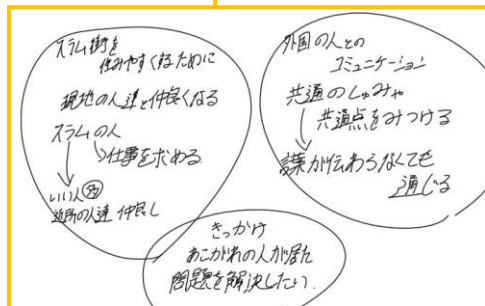 スラム街を
住みやすくするために
現地の人達と仲良くなる
スラムの人
仕事を求める
いい人 多
近所の人達 仲良し
外国の人との
コミュニケーション
共通のしゅみや
共通点をみつける
言葉が伝わらなくても
通じる
きっかけ
あこがれの人が居た
問題を解決したい